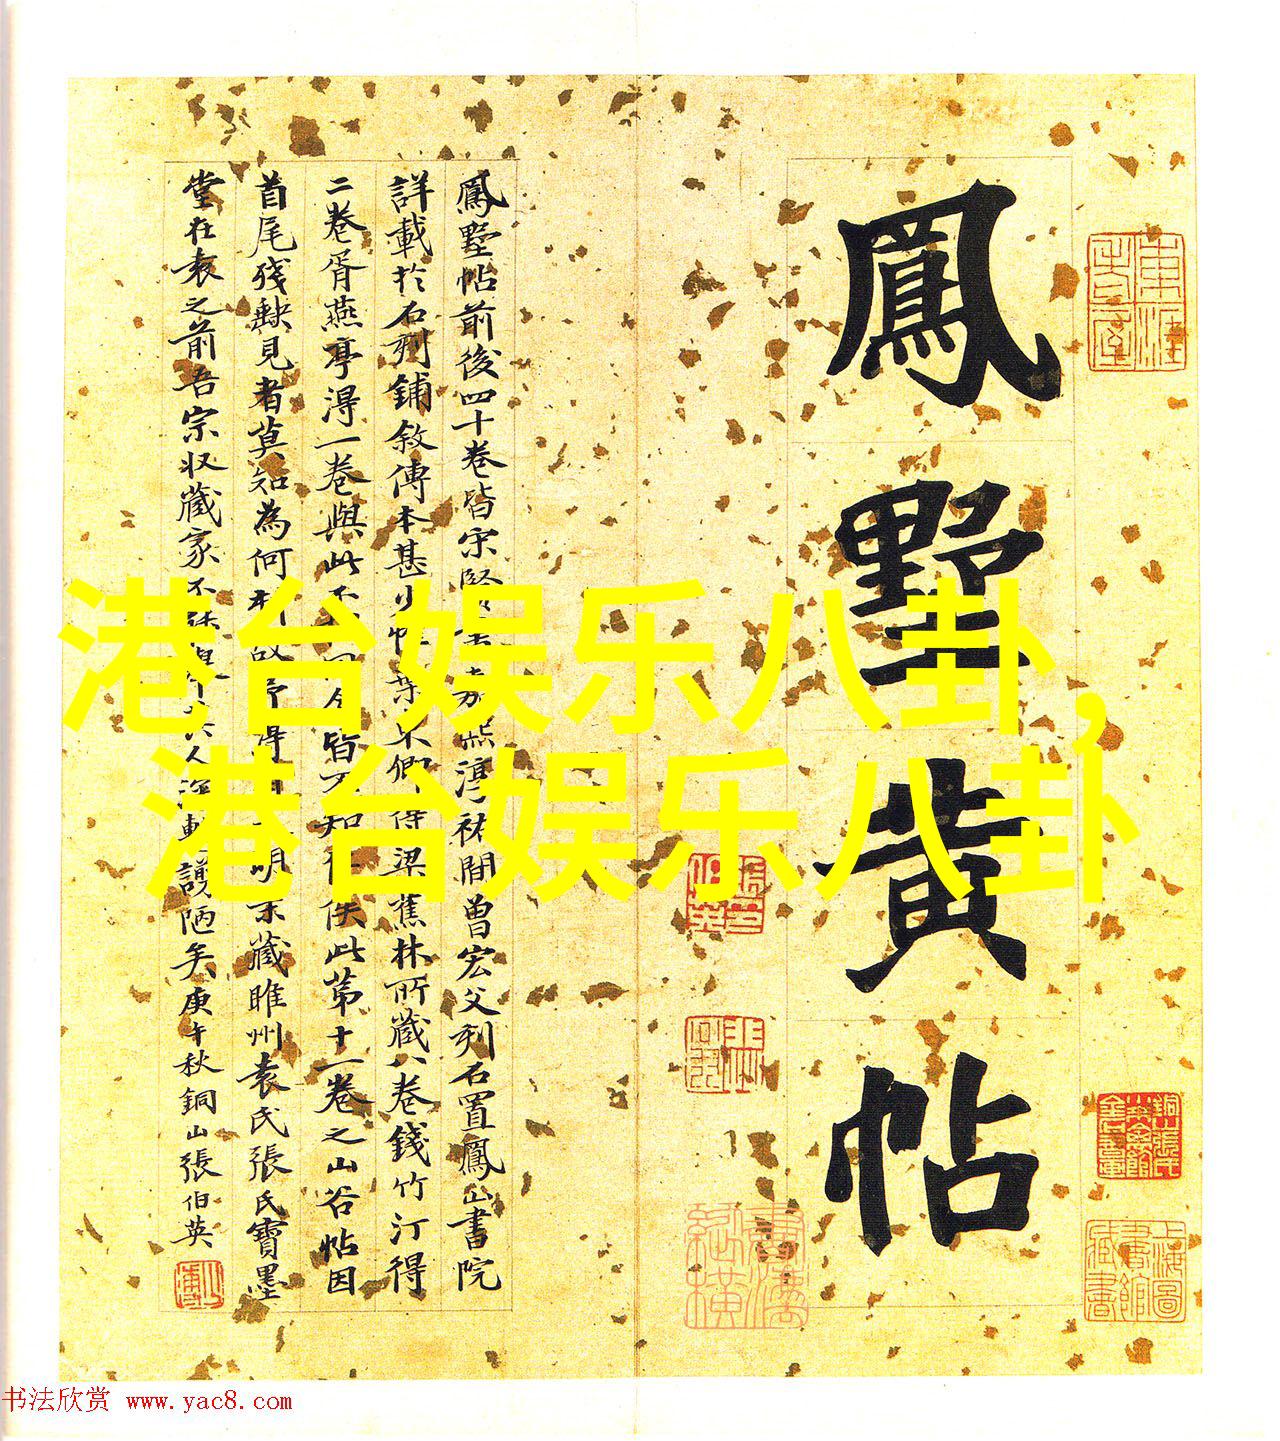 鳳墅黃帖
鳳墅帖前後四十卷皆宋賢書嘉熙淳祐間曾宏父刻石置鳳山書院
詳載於石刻鋪敘傳本甚少惟葉東卿得梁蕉林所藏八卷錢竹汀得
二卷胥燕亭得一卷與此不同今皆不知存佚此第十一卷之山谷帖因
首尾殘缺見者莫知為何刻故予得明末藏睢州袁氏張氏寶墨
堂在袁之前吾宗收藏家不人深護陋矣庚午秋銅山張伯英
港台娱乐八卦,
港台娱乐八卦
上海圖書館藏書
书法欣赏 www.yac8.com